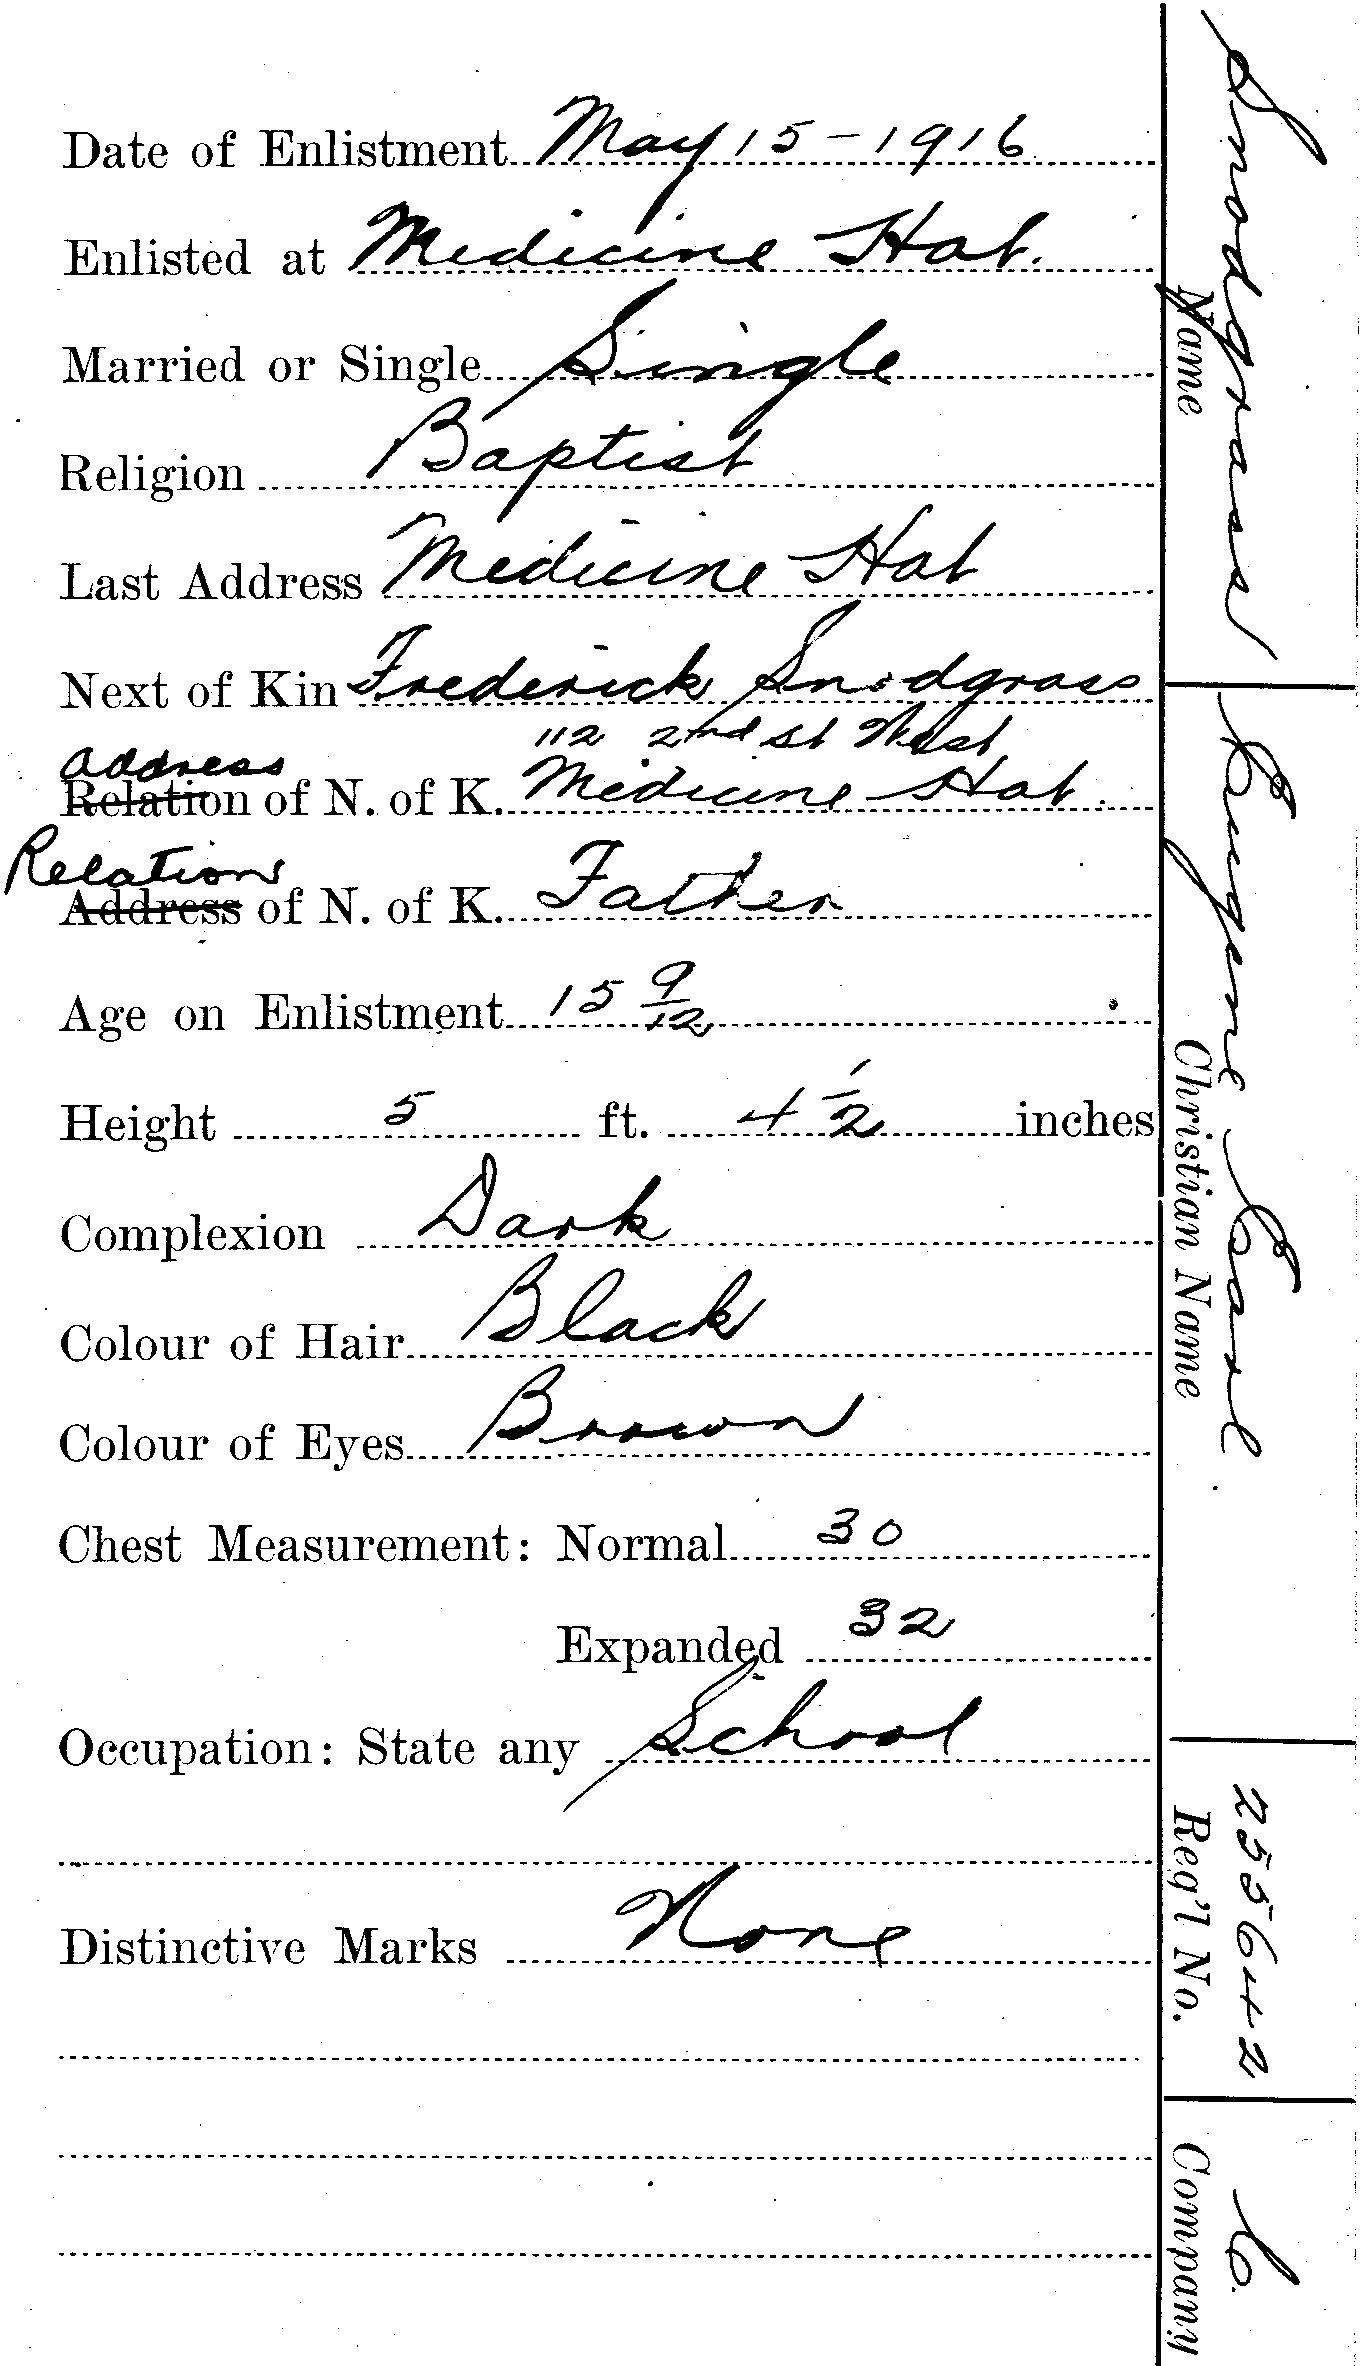 Date of Enlistment May 15 - 1916
Enlisted at Medicine Hat.
Married or Single Single
Religion Baptist
Last Address Medicine Hat
Next of Kin Frederick Snodgrass
112 2nd St West
Address
Relation of N. of K. Medicine Hat.
Relation
Address of N. of K. Father
Age on Enlistment 15 9/12
Height 5 ft. 4 1/2 inches
Complexion Dark
Colour of Hair Black
Colour of Eyes Brown
Chest Measurement: Normal 30
Expanded 32
Occupation: State any School
Distinctive Marks None
Snodgrass
Name
Eugene Earl
Christian Name
255642
Reg'l No.
C.
Company